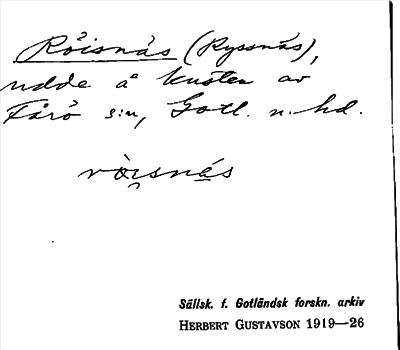 Röisnäs (Ryssnäs),
udde å kusten av
Fårö s:n, Gotl. n. hd.
ròi̯snę́s
Sällsk. f. Gotländsk forskn. arkiv
HERBERT GUSTAVSON 1919—26